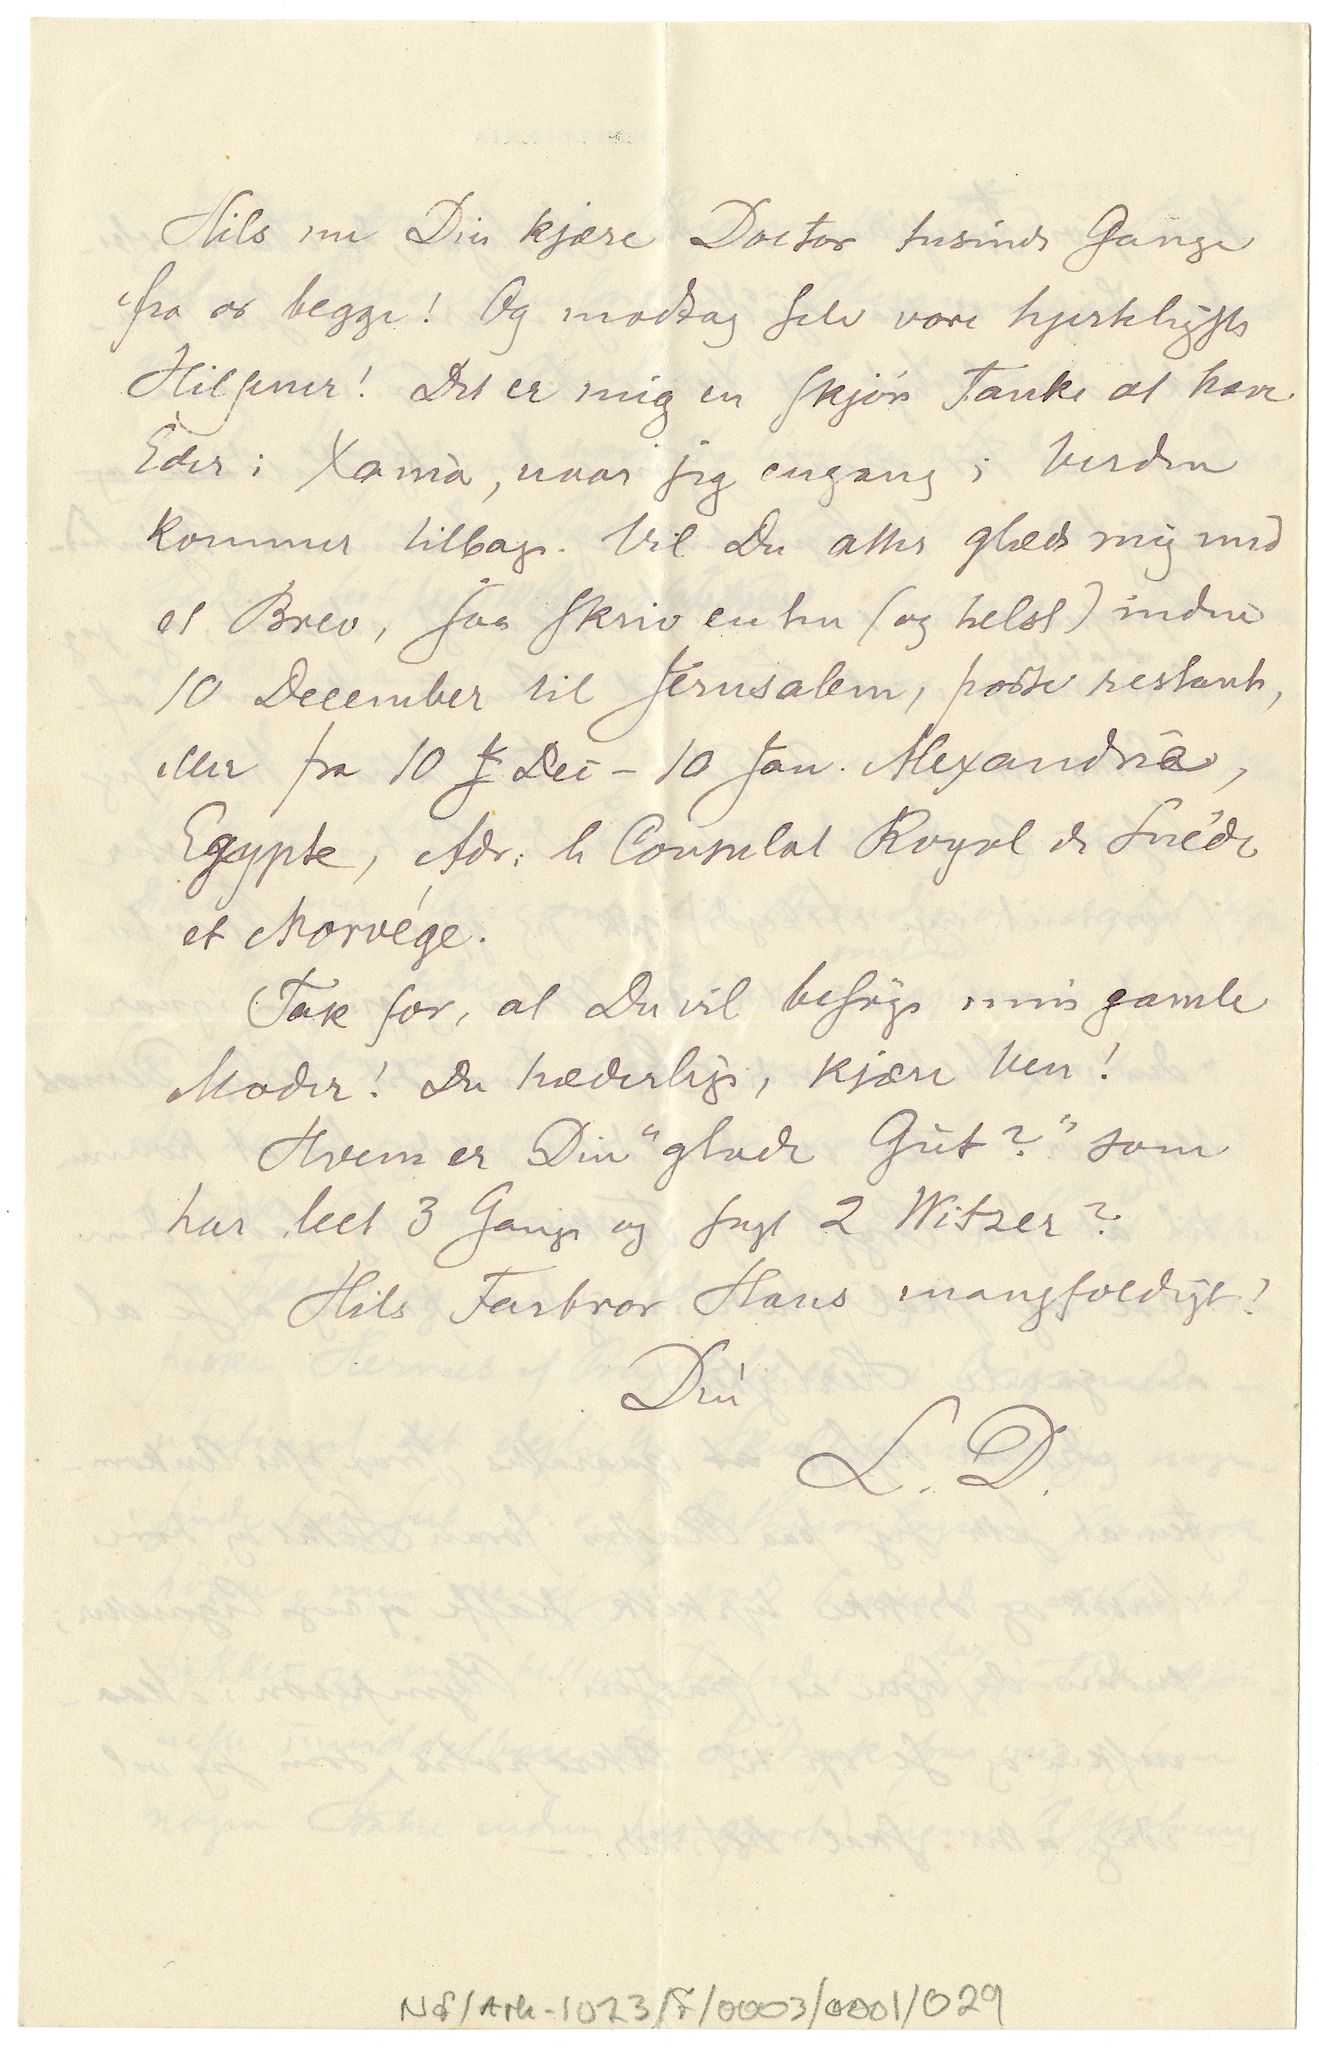 Hils nu Din kjære Doctor tusinde Gange
fra os begge! Og modtag selv vore hjerteligste
Hilsener! Det er mig en skjön Tanke at have
Eder i Xania, naar jeg engang i Verden
kommer tilbage. Vil Du atter glæde mig med
et Brev, saa skriv enten (og helst) inden
10 December til Jerusalem, poste restante,
eller fra 10 Dec - 10 Jan. Alexandria,
Egypte, Adr: le Consulat Royal de Suéde
et Norvége.
Tak for, at Du vil besöge min gamle
Moder! Du hæderlige, kjære Ven!
Hvem er Din "glade Gut?" som
har leet 3 Gange og sagt 2 Witzer?
Hils Farbror Hans mangfoldigt!
Din
L. D.
NB/Ark-1023/F/0003/0001/029